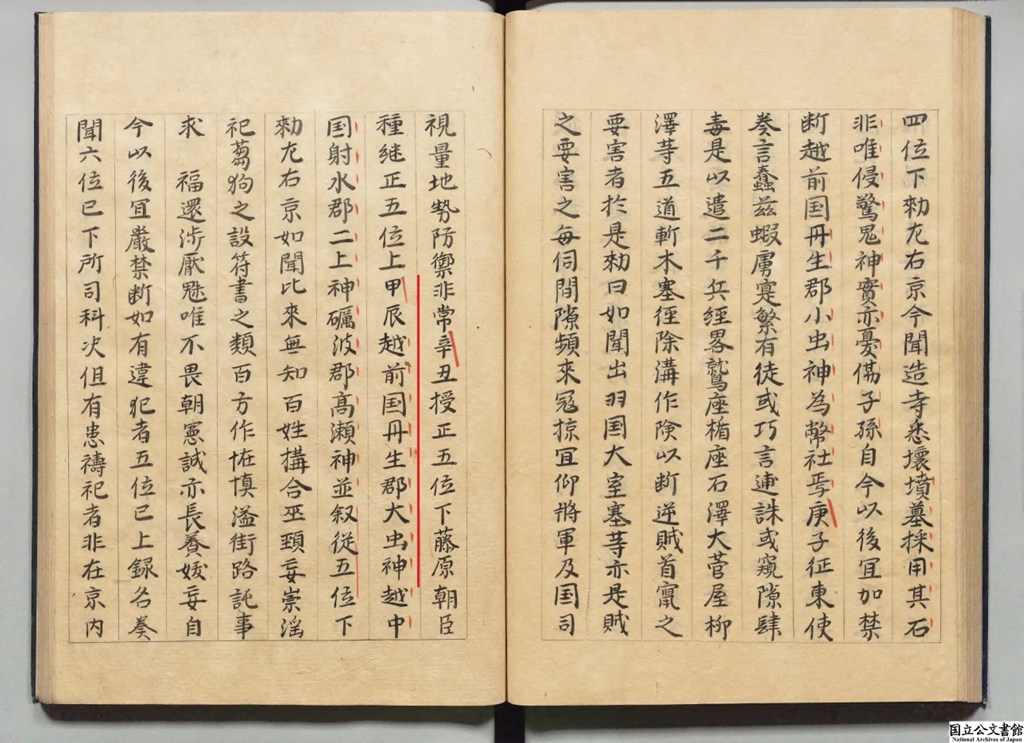 四位下勅左右京今聞造寺悉壊墳墓採用其石
非唯侵驚鬼神實亦憂傷子孫自今以後宜加禁
断越前国丹生郡小虫神為幣社焉庚子征東使
奏言蠢茲蝦虜寔繁有徒或巧言逋誅或窺隙肆
毒是以遣二千兵経畧鷲座楯座石澤大菅屋柳
澤䓁五道斬木塞径除溝作険以断逆賊首竄之
要害者於是勅曰如聞出羽国大室塞䓁亦是賊
之要害之每伺間隙頻来冠掠宜仰将軍及国司
視量地勢防禦非常辛丑授正五位下藤原朝臣
種継正五位上甲辰越前国丹生郡大虫神越中
国射水郡二上神礪波郡髙瀬神並叙従五位下
勅左右京如聞比來無知百姓搆合巫覡妄崇淫
祀蒭狗之設符書之類百方作恠慎溢街路託事
求 福還渉厭魅唯不畏朝憲誠亦長養妖妄自
今以後宜厳禁断如有違犯者五位已上録名奏
聞六位已下所司科决但有患禱祀者非在京内
国立公文書館
National Archives of Japan